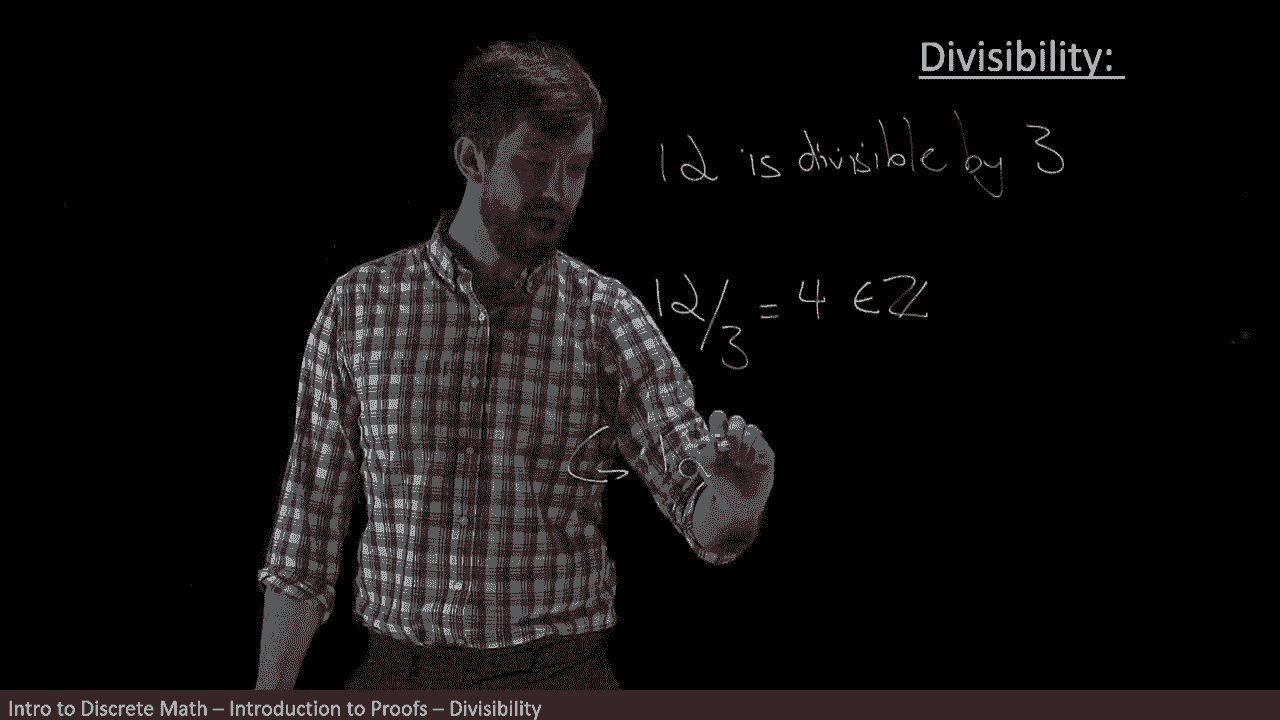 Divisibility:
12 is divisible by 3
12/3 = 4 ∈ ℤ
Intro to Discrete Math – Introduction to Proofs – Divisibility